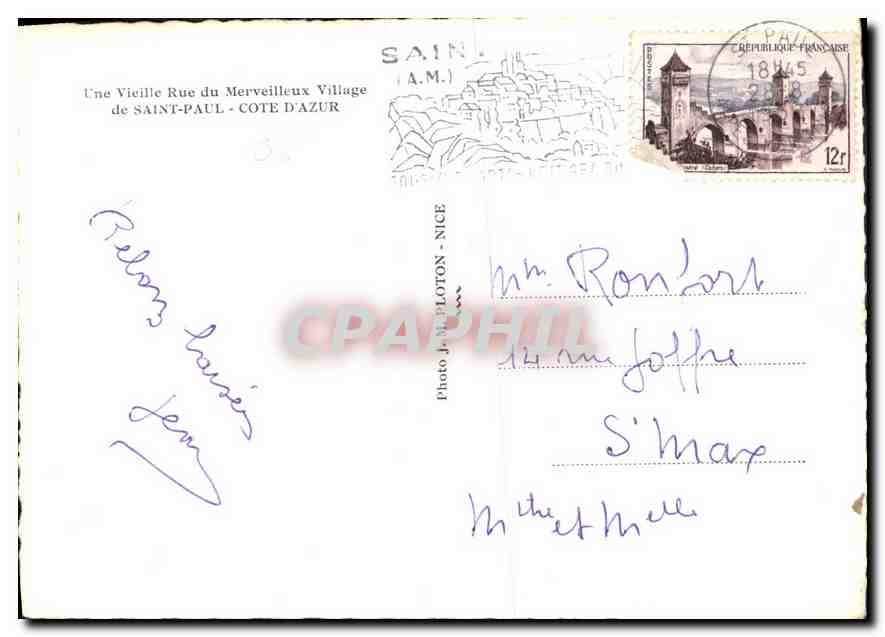 Une Vieille Rue du Merveilleux Village
de SAINT-PAUL - COTE D'AZUR
SAIN
(A.M.)
POSTES
RÉPUBLIQUE FRANÇAISE
12F
St PAUL
18H45
28-8
Photo J. M. PLOTON - NICE
CPAPHIL
baisers
Jean
Mm. Ronfort
14 rue Joffre
St Max
Mthe et Melle